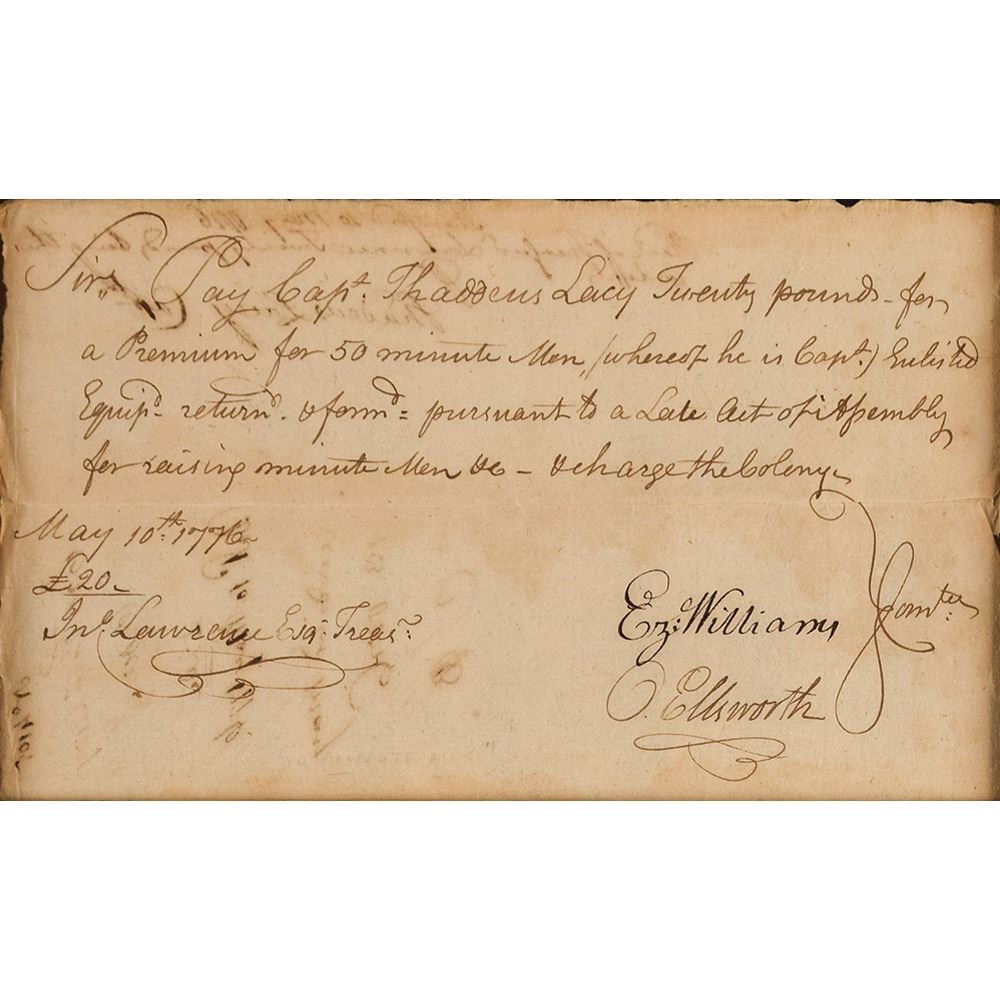 Sir, Pay Capt. Thaddeus Lacy Twenty pounds - for
a Premium for 50 minute Men (whereof he is Capt.) Enlisted
Equipd. returnd. & formd = pursuant to a Late Act of Assembly
for raising minute Men &c - & charge the Colony
May 10th. 1776
£20 -
Jno. Lawrence Esqr. Treasr.
Ez: Williams
O. Ellsworth
Comtee